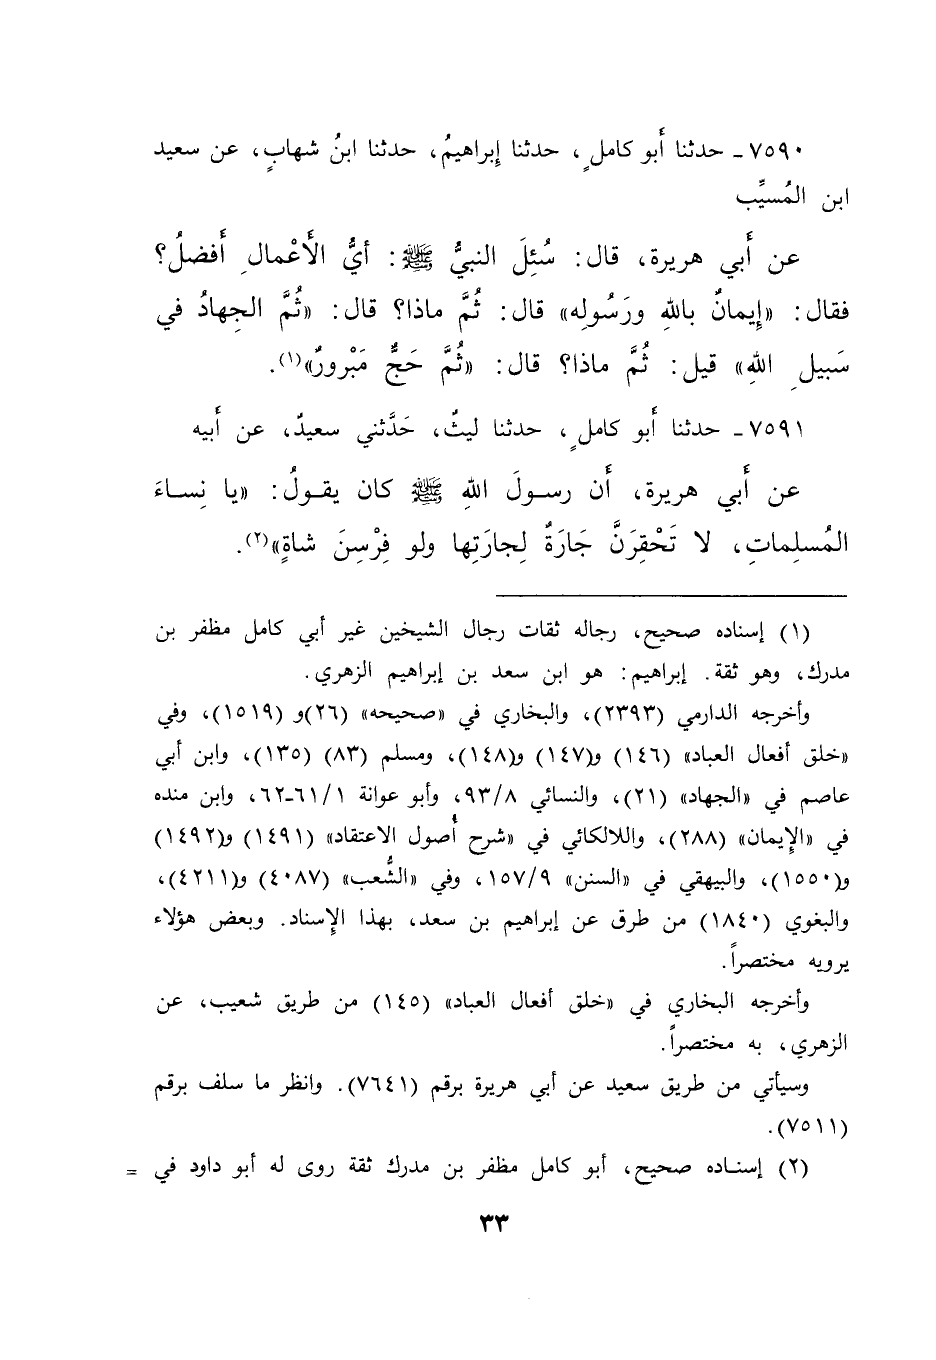 ٧٥٩٠ـ حدثنا أَبو كاملٍ، حدثنا إِبراهيمُ، حدثنا ابنُ شهابٍ، عن سعيد
ابن المُسيِّب
عن أَبي هريرة، قال: سُئِلَ النبيُّ ﷺ: أيُّ الأَعْمالِ أَفضلُ؟
فقال: «إِيمانٌ باللهِ ورَسُولِه» قال: ثُمَّ ماذا؟ قال: «ثُمَّ الجِهادُ في
سَبيلِ اللهِ» قيل: ثُمَّ ماذا؟ قال: «ثُمَّ حَجٌّ مَبْرورٌ»(١).
٧٥٩١ـ حدثنا أَبو كاملٍ، حدثنا ليثٌ، حَدَّثني سعيدٌ، عن أَبيه
عن أَبي هريرة، أَن رسولَ اللهِ ﷺ كان يقولُ: «يا نِساءَ
المُسلِماتِ، لا تَحْقِرَنَّ جَارَةٌ لِجارَتِها ولو فِرْسِنَ شاةٍ»(٢).
(١) إسناده صحيح، رجاله ثقات رجال الشيخين غير أبي كامل مظفر بن
مدرك، وهو ثقة. إبراهيم: هو ابن سعد بن إبراهيم الزهري.
وأخرجه الدارمي (٢٣٩٣)، والبخاري في «صحيحه» (٢٦)و (١٥١٩)، وفي
«خلق أفعال العباد» (١٤٦) و(١٤٧) و(١٤٨)، ومسلم (٨٣) (١٣٥)، وابن أبي
عاصم في «الجهاد» (٢١)، والنسائي ٩٣/٨، وأبو عوانة ٦١/١-٦٢، وابن منده
في «الإيمان» (٢٨٨)، واللالكائي في «شرح أصول الاعتقاد» (١٤٩١) و(١٤٩٢)
و(١٥٥٠)، والبيهقي في «السنن» ١٥٧/٩، وفي «الشُّعب» (٤٠٨٧) و(٤٢١١)،
والبغوي (١٨٤٠) من طرق عن إبراهيم بن سعد، بهذا الإِسناد. وبعض هؤلاء
يرويه مختصراً.
وأخرجه البخاري في «خلق أفعال العباد» (١٤٥) من طريق شعيب، عن
الزهري، به مختصراً.
وسيأتي من طريق سعيد عن أبي هريرة برقم (٧٦٤١). وانظر ما سلف برقم
(٧٥١١).
(٢) إسناده صحيح، أبو كامل مظفر بن مدرك ثقة روى له أبو داود في =
٣٣